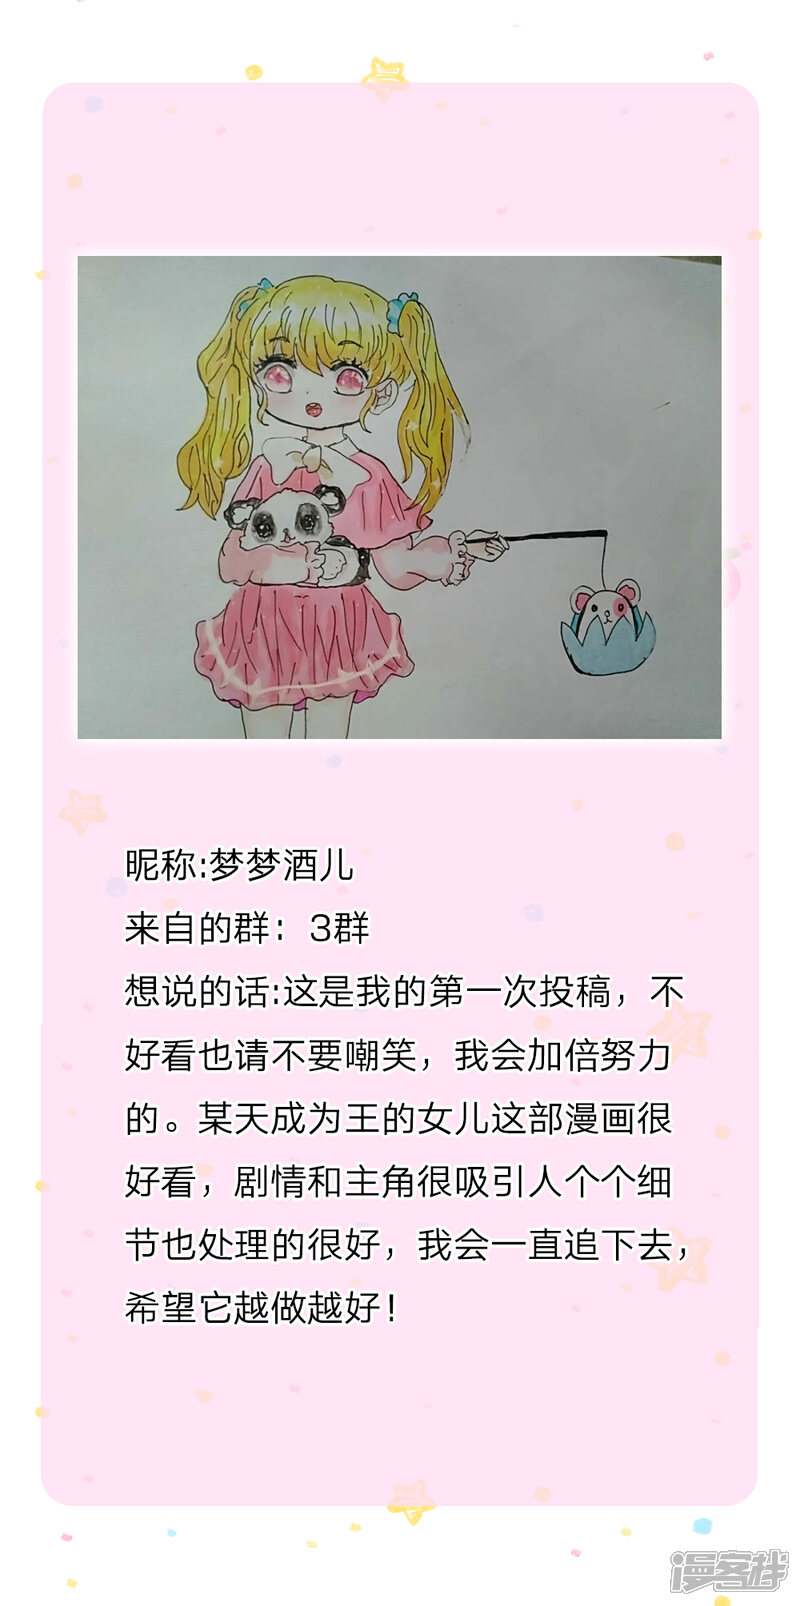 昵称:梦梦酒儿
来自的群：3群
想说的话:这是我的第一次投稿，不
好看也请不要嘲笑，我会加倍努力
的。某天成为王的女儿这部漫画很
好看，剧情和主角很吸引人个个细
节也处理的很好，我会一直追下去，
希望它越做越好！
漫客栈